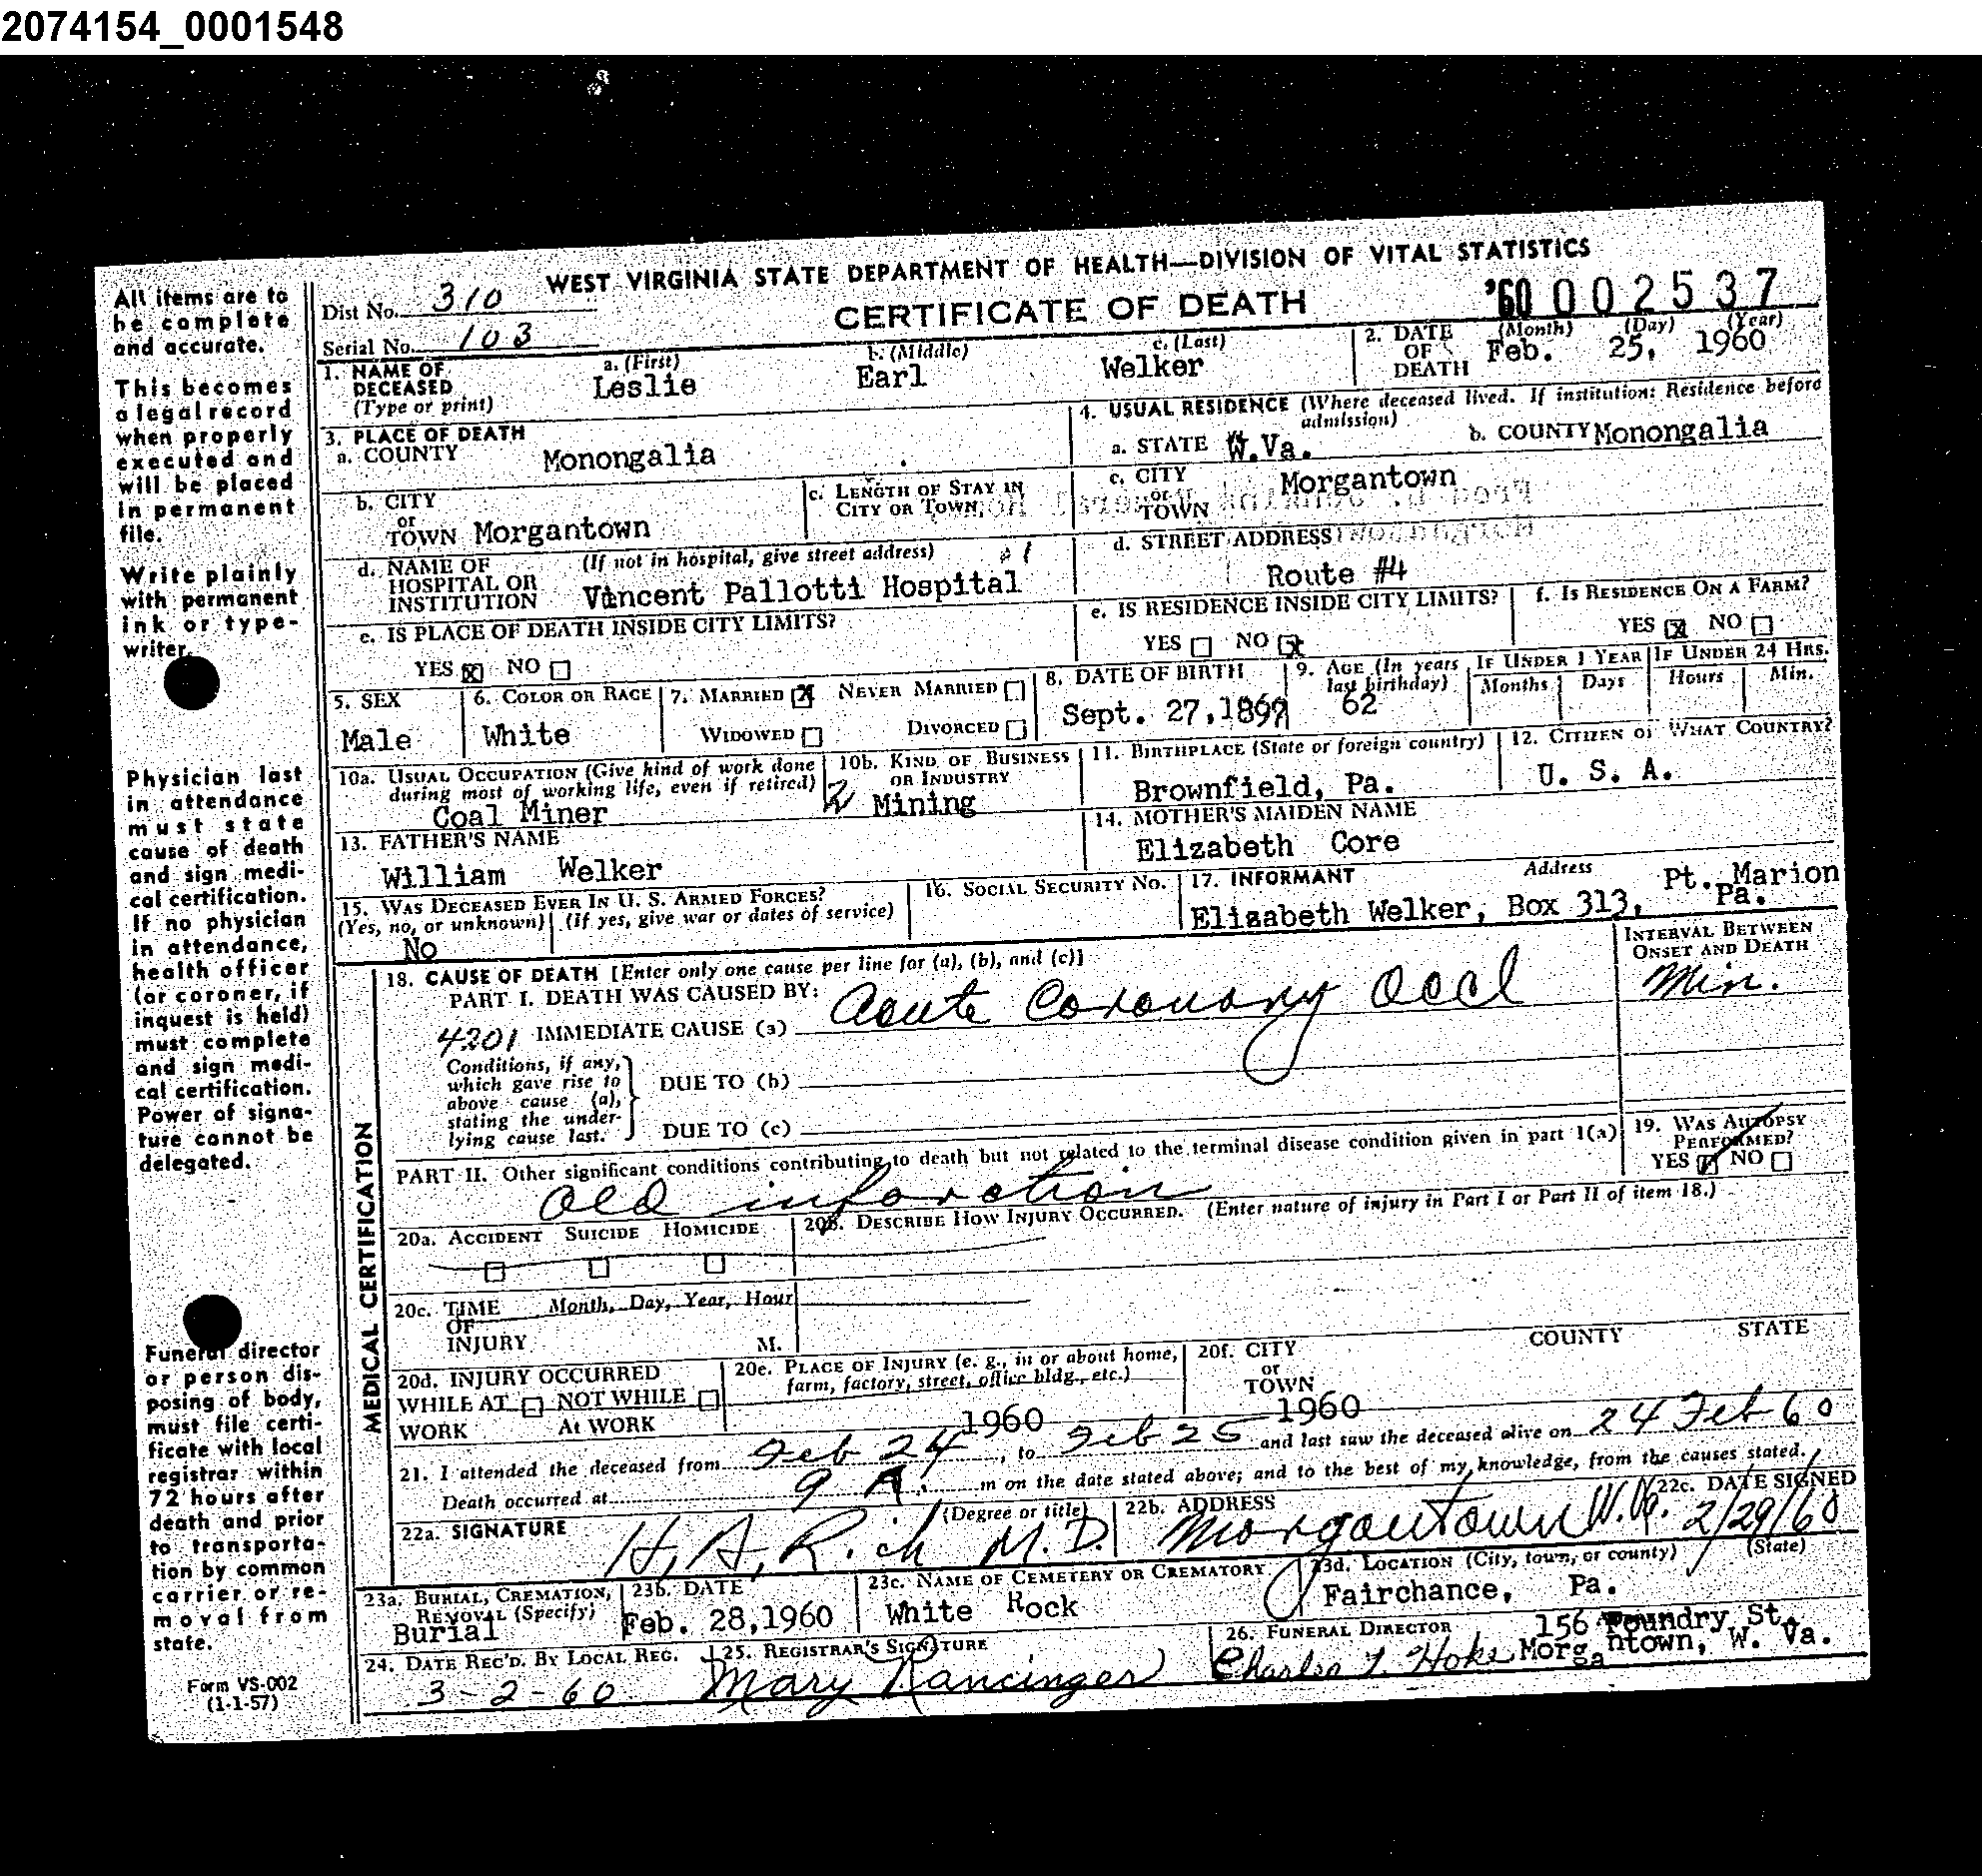 2074154_0001548
WEST VIRGINIA STATE DEPARTMENT OF HEALTH—DIVISION OF VITAL STATISTICS
CERTIFICATE OF DEATH
'60 002537
Dist No. 310
Serial No. 103
All items are to
be complete
and accurate.
This becomes
a legal record
when properly
executed and
will be placed
in permanent
file.
Write plainly
with permanent
ink or type-
writer.
Physician last
in attendance
must state
cause of death
and sign medi-
cal certification.
If no physician
in attendance,
health officer
(or coroner, if
inquest is held)
must complete
and sign medi-
cal certification.
Power of signa-
ture cannot be
delegated.
Funeral director
or person dis-
posing of body,
must file certi-
ficate with local
registrar within
72 hours after
death and prior
to transporta-
tion by common
carrier or re-
moval from
state.
Form VS-002
(1-1-57)
1. NAME OF DECEASED (Type or print) a. (First) Leslie b. (Middle) Earl c. (Last) Welker
2. DATE OF DEATH (Month) (Day) (Year) Feb. 25, 1960
3. PLACE OF DEATH
a. COUNTY Monongalia
4. USUAL RESIDENCE (Where deceased lived. If institution: Residence before admission)
a. STATE W.Va. b. COUNTY Monongalia
b. CITY or TOWN Morgantown
c. LENGTH OF STAY IN CITY OR TOWN
c. CITY or TOWN Morgantown
d. NAME OF HOSPITAL OR INSTITUTION (If not in hospital, give street address) Vincent Pallotti Hospital
d. STREET ADDRESS Route #4
e. IS PLACE OF DEATH INSIDE CITY LIMITS? YES X NO
e. IS RESIDENCE INSIDE CITY LIMITS? YES NO X
f. IS RESIDENCE ON A FARM? YES X NO
5. SEX Male
6. COLOR OR RACE White
7. MARRIED X NEVER MARRIED WIDOWED DIVORCED
8. DATE OF BIRTH Sept. 27,1897
9. AGE (In years last birthday) 62
IF UNDER 1 YEAR Months Days
IF UNDER 24 HRS. Hours Min.
10a. USUAL OCCUPATION (Give kind of work done during most of working life, even if retired) Coal Miner
10b. KIND OF BUSINESS OR INDUSTRY Mining
11. BIRTHPLACE (State or foreign country) Brownfield, Pa.
12. CITIZEN OF WHAT COUNTRY? U. S. A.
13. FATHER'S NAME William Welker
14. MOTHER'S MAIDEN NAME Elizabeth Core
15. WAS DECEASED EVER IN U. S. ARMED FORCES? (Yes, no, or unknown) (If yes, give war or dates of service) No
16. SOCIAL SECURITY NO.
17. INFORMANT Address Elisabeth Welker, Box 313, Pt. Marion Pa.
MEDICAL CERTIFICATION
18. CAUSE OF DEATH [Enter only one cause per line for (a), (b), and (c)]
INTERVAL BETWEEN ONSET AND DEATH
PART I. DEATH WAS CAUSED BY:
4201 IMMEDIATE CAUSE (a) Acute Coronary Occl Min.
Conditions, if any, which gave rise to above cause (a), stating the underlying cause last.
DUE TO (b)
DUE TO (c)
PART II. Other significant conditions contributing to death but not related to the terminal disease condition given in part I(a)
Old infarction
19. WAS AUTOPSY PERFORMED? YES NO
20a. ACCIDENT SUICIDE HOMICIDE
20b. DESCRIBE HOW INJURY OCCURRED. (Enter nature of injury in Part I or Part II of item 18.)
20c. TIME OF INJURY Month, Day, Year, Hour M.
20d. INJURY OCCURRED WHILE AT WORK NOT WHILE At WORK
20e. PLACE OF INJURY (e. g., in or about home, farm, factory, street, office bldg., etc.)
20f. CITY or TOWN COUNTY STATE
21. I attended the deceased from Feb 24 1960, to Feb 25 1960 and last saw the deceased alive on 24 Feb 60
Death occurred at 9 A. m on the date stated above; and to the best of my knowledge, from the causes stated.
22a. SIGNATURE (Degree or title) H. A. Rich M.D.
22b. ADDRESS Morgantown W.Va.
22c. DATE SIGNED 2/29/60
23a. BURIAL, CREMATION, REMOVAL (Specify) Burial
23b. DATE Feb. 28,1960
23c. NAME OF CEMETERY OR CREMATORY White Rock
23d. LOCATION (City, town, or county) (State) Fairchance, Pa.
24. DATE REC'D. BY LOCAL REG. 3-2-60
25. REGISTRAR'S SIGNATURE Mary
26. FUNERAL DIRECTOR Charles L. Hoke 156 Foundry St, Morgantown, W. Va.